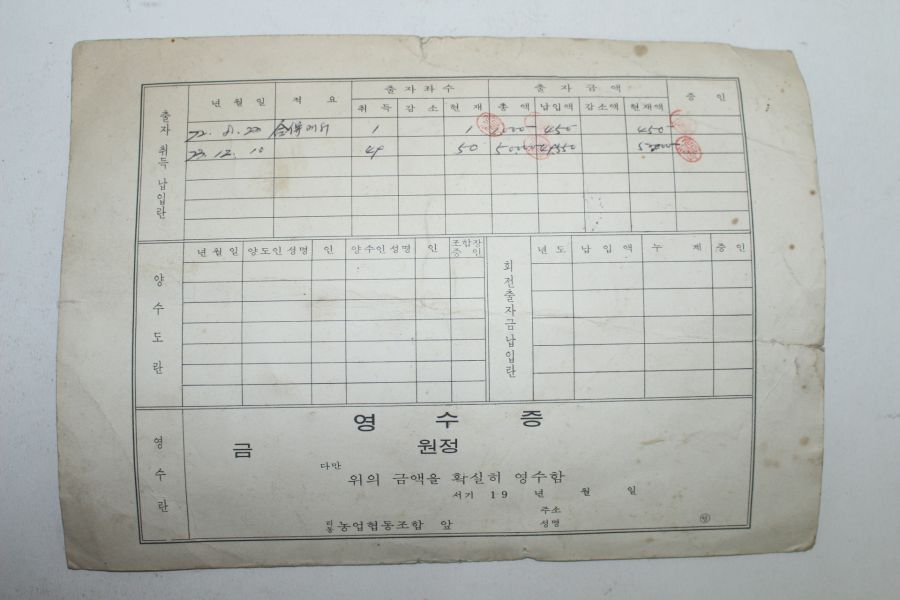 출자 취득 납입란
년월일 적요 출자좌수 출자금액 증인
취득 감소 현재 총액 납입액 감소액 현재액
72. 8. 20 1 1 450 450
73. 12. 10 50
양수도란
년월일 양도인성명 인 양수인성명 인 조합장증인
회전출자금납입란
년도 납입액 누계 증인
영수란
영수증
금 원정
다만
위의 금액을 확실히 영수함
서기 19 년 월 일
주소
리동 농업협동조합 앞 성명 인